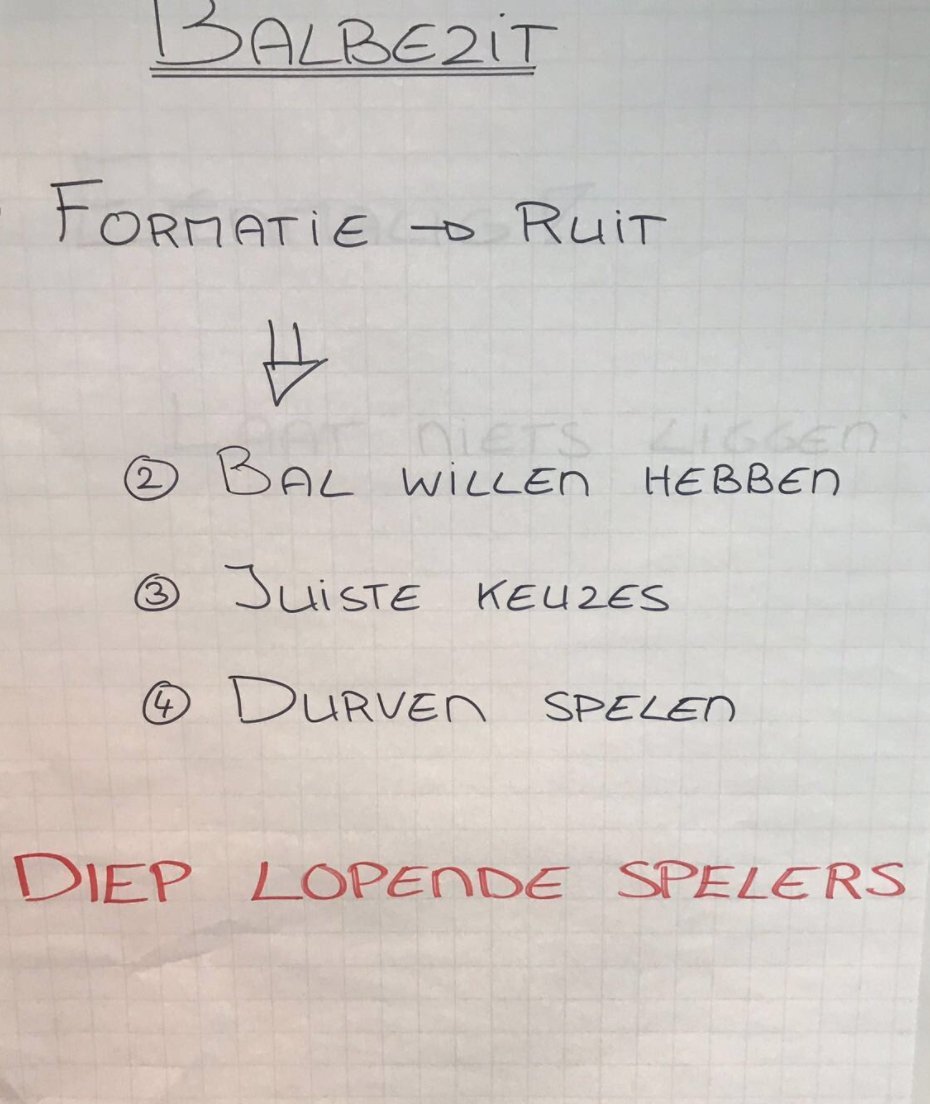 BALBEZiT
FORMATiE → RUiT
② BAL WiLLEN HEBBEN
③ JUiSTE KEUZES
④ DURVEN SPELEN
LAAT NiETS LiGGEN
DIEP LOPENDE SPELERS